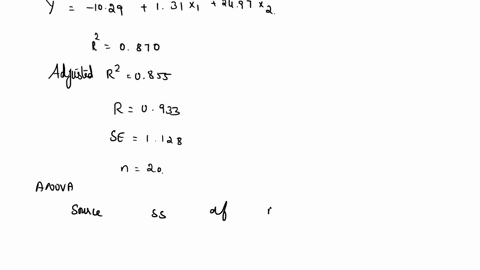 Y = -10.29 + 1.31 x1 + 24.97 x2.
R² = 0.870
Adjusted R² = 0.855
R = 0.933
SE = 1.128
n = 20.
ANOVA
Source SS df